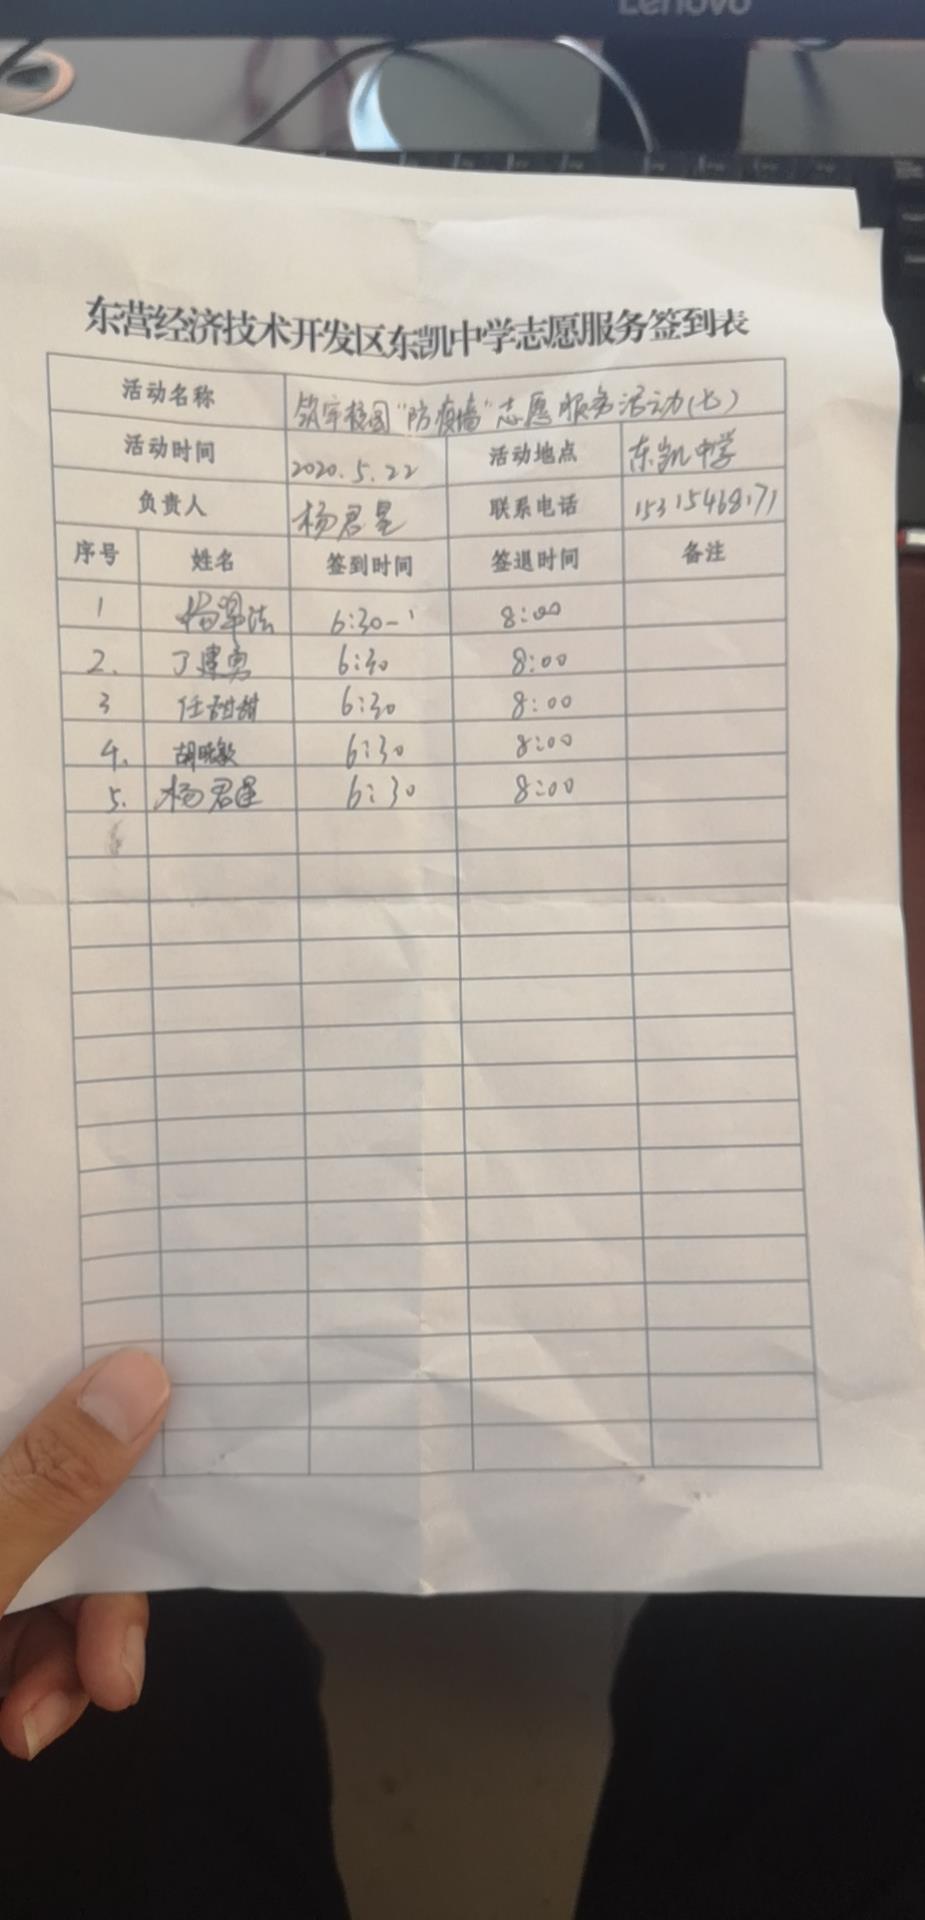 Lenovo
东营经济技术开发区东凯中学志愿服务签到表
活动名称 筑牢校园“防疫墙”志愿服务活动(七)
活动时间 2020.5.22 活动地点 东凯中学
负责人 杨君星 联系电话 15315468171
序号 姓名 签到时间 签退时间 备注
1 6:30 8:00
2. 丁建勇 6:30 8:00
3 任甜甜 6:30 8:00
4. 胡晓敏 6:30 8:00
5. 杨君星 6:30 8:00